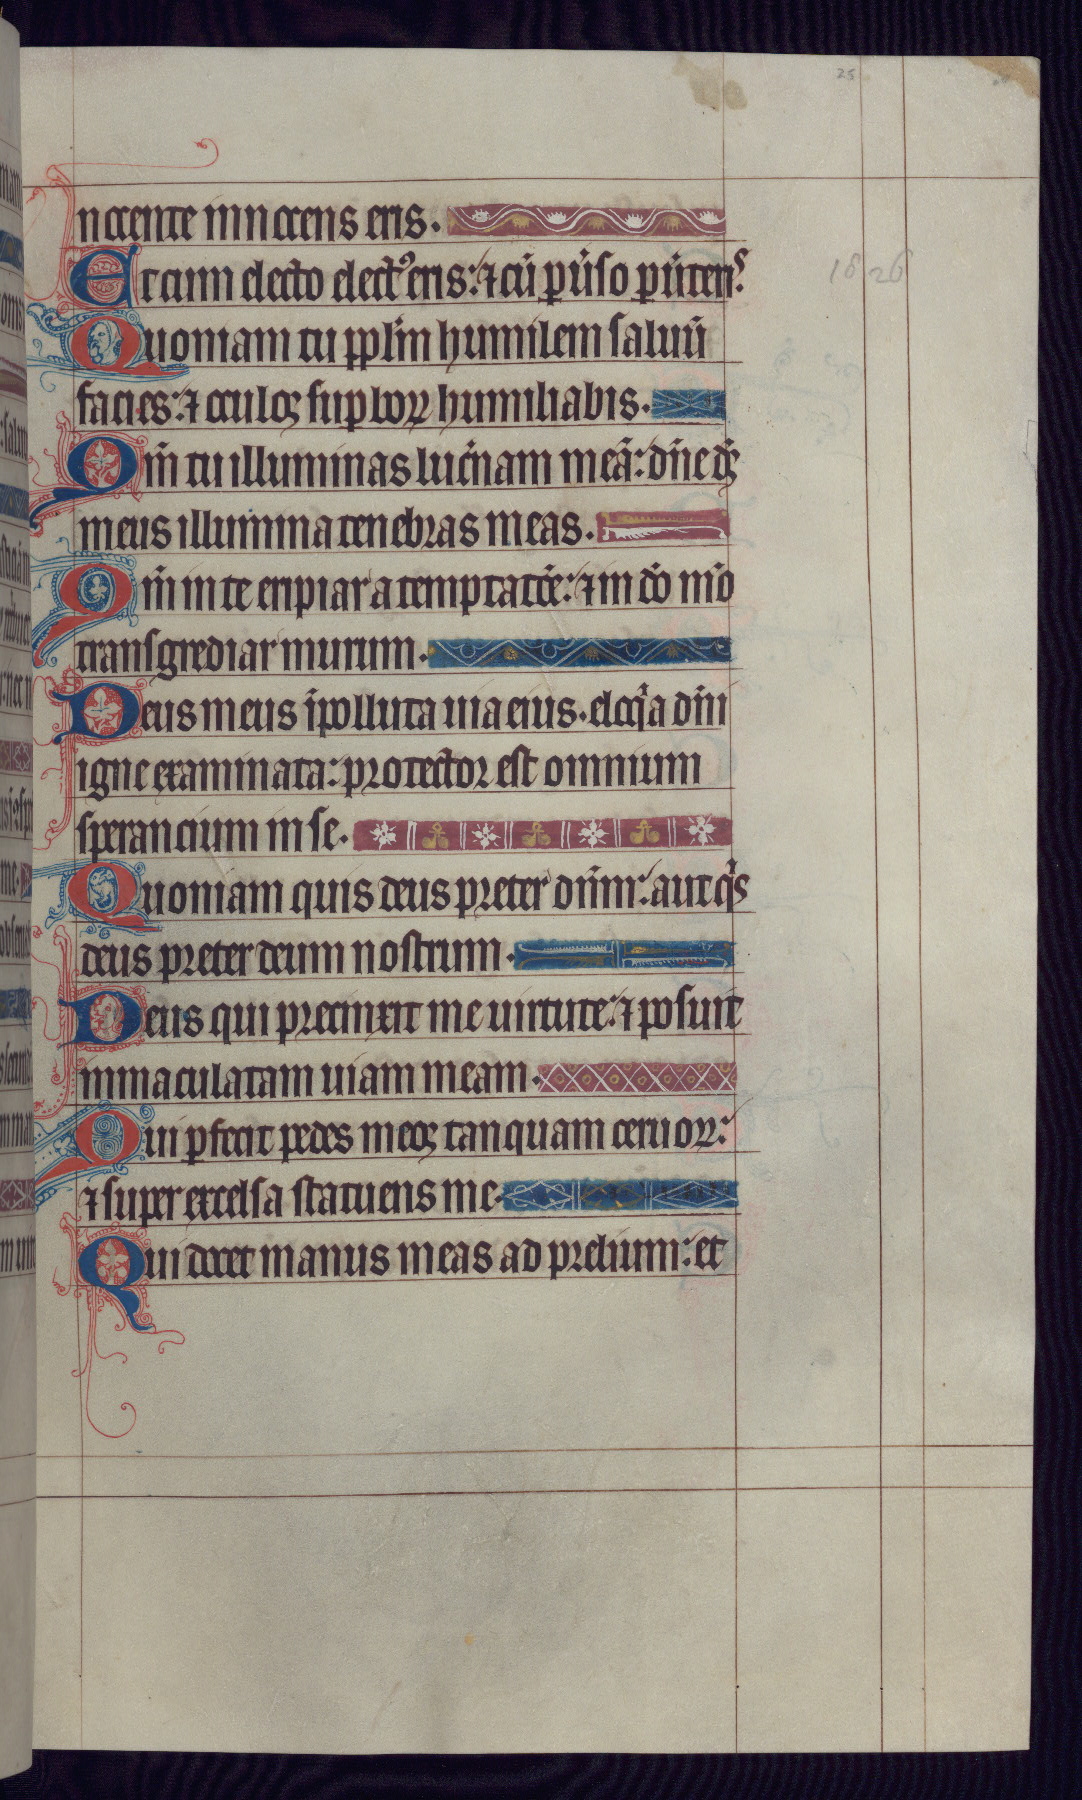 25
nocente innocens eris.
Et cum electo elect᾿ eris: ⁊ cū ꝑu̾so ꝑu̾teris
18 26
Quoniam tu pplm̄ humilem saluū
facies: ⁊ oculos suꝑboꝝ humiliabis.
Qm̄ tu illuminas luc̾nam meā: dn̄e ds̄
meus illumina tenebras meas.
Qm̄ in te eripiar a temptatōe: ⁊ in dō mō
transgrediar murum.
Deus meus īpolluta uia eius. eloqͥa dn̄i
igne examinata: protector est omnium
sperancium in se.
Quoniam quis deus preter dn̄m: aut qͥs
deus preter deum nostrum.
Deus qui precinxit me uirtute: ⁊ posuit
immaculatam uiam meam.
Qui ꝑfecit pedes meos tanquam ceruoꝝ:
⁊ super excelsa statuens me.
Qui docet manus meas ad prelium: et